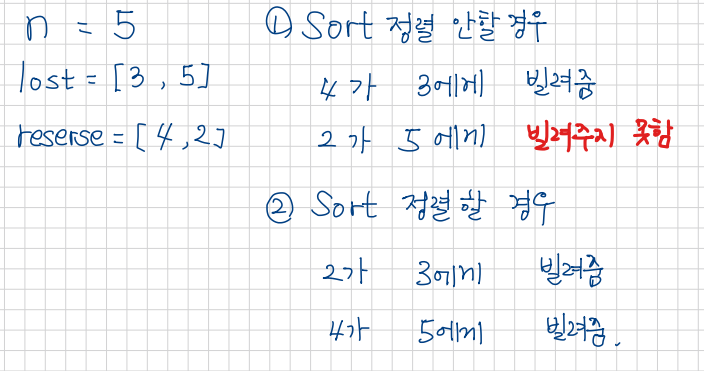 n = 5
lost = [3, 5]
reserse = [4, 2]
① Sort 정렬 안할 경우
4가 3에게 빌려줌
2가 5에게 빌려주지 못함
② Sort 정렬 할 경우
2가 3에게 빌려줌
4가 5에게 빌려줌.